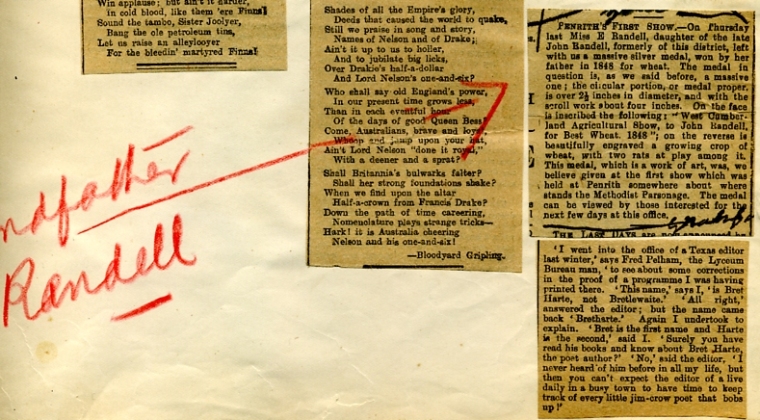 Win applause; but ain't it harder,
In cold blood, like them 'ere Finns?
Sound the tambo, Sister Joolyer,
Bang the ole petroleum tins,
Let us raise an alleylooyer
For the bleedin' martyred Finns!
Shades of all the Empire's glory,
Deeds that caused the world to quake,
Still we praise in song and story,
Names of Nelson and of Drake;
Ain't it up to us to holler,
And to jubilate big licks,
Over Drakie's half-a-dollar
And Lord Nelson's one-and-six?
Who shall say old England's power,
In our present time grows less,
Than in each eventful hour
Of the days of good Queen Bess!
Come, Australians, brave and loyal,
Whoop and jump upon your hat,
Ain't Lord Nelson "done it royal,"
With a deener and a sprat?
Shall Britannia's bulwarks falter?
Shall her strong foundations shake?
When we find upon the altar
Half-a-crown from Francis Drake?
Down the path of time careering,
Nomenclature plays strange tricks—
Hark! it is Australia cheering
Nelson and his one-and-six!
—Bloodyard Gripling.
PENRITH'S FIRST SHOW.—On Thursday
last Miss E Randell, daughter of the late
John Randell, formerly of this district, left
with us a massive silver medal, won by her
father in 1848 for wheat. The medal in
question is, as we said before, a massive
one; the circular portion, or medal proper,
is over 2½ inches in diameter, and with the
scroll work about four inches. On the face
is inscribed the following: "West Cumber-
land Agricultural Show, to John Randell,
for Best Wheat 1848"; on the reverse is
beautifully engraved a growing crop of
wheat, with two rats at play among it.
This medal, which is a work of art, was, we
believe given at the first show which was
held at Penrith somewhere about where
stands the Methodist Parsonage. The medal
can be viewed by those interested for the
next few days at this office.
THE LAST DAYS are now
'I went into the office of a Texas editor
last winter,' says Fred Pelham, the Lyceum
Bureau man, 'to see about some corrections
in the proof of a programme I was having
printed there. 'This name,' says I, 'is Bret
Harte, not Bretlewaite.' 'All right,'
answered the editor; but the name came
back 'Bretharte.' Again I undertook to
explain. 'Bret is the first name and Harte
is the second,' said I. 'Surely you have
read his books and know about Bret Harte,
the poet author?' 'No,' said the editor. 'I
never heard of him before in all my life, but
then you can't expect the editor of a live
daily in a busy town to have time to keep
track of every little jim-crow poet that bobs
up!'
ndfather
Randell